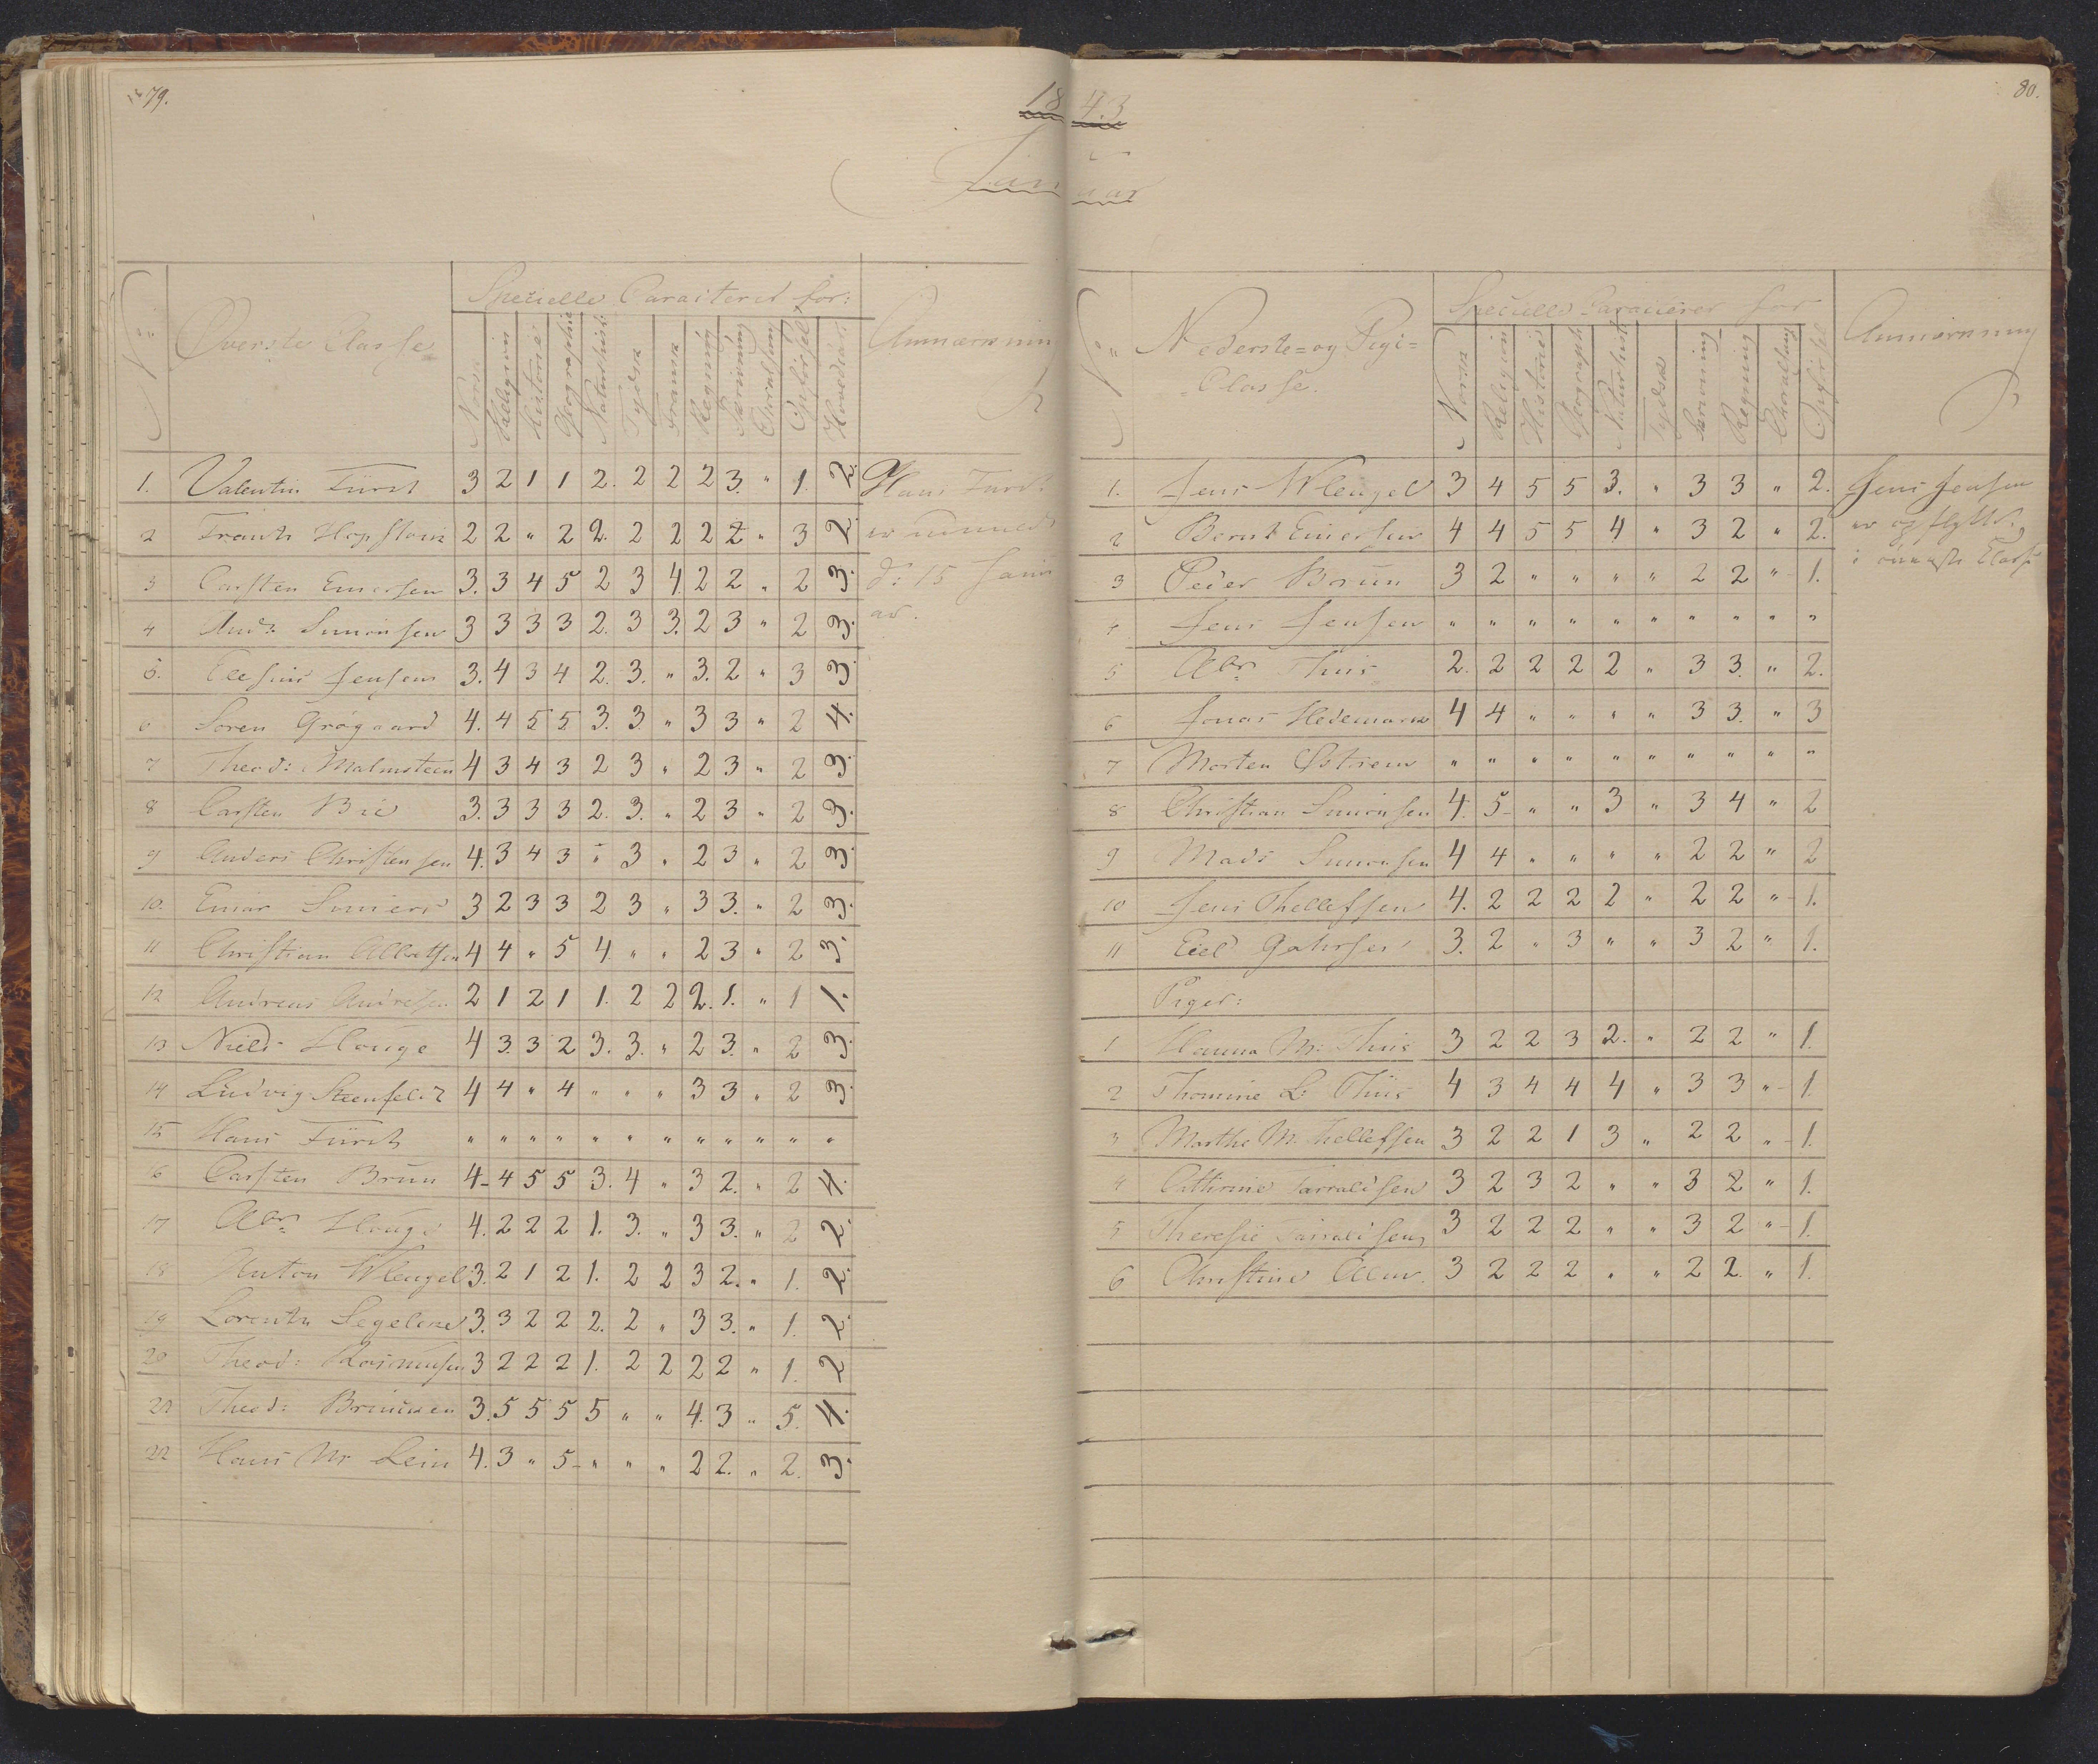 79.
1843
Januar
No
Øverste Classe
Specielle Caracterer for:
Norsk
Religion
Historie
Geographie
Naturhist:
Tydsk
Fransk
Regning
Skrivning
Choralsang
Opførsel
Hovedcar:
Anmærkning
1. Valentin Fürst 3 2 1 1 2. 2 2 2 3. " 1. 2.
2 Frantz Hopstock 2 2 " 2 2. 2 2 2 2 " 3 2.
3 Carsten Einersen 3. 3 4 5 2 3 4. 2 2 " 2 3.
4 And: Simonsen 3 3 3 3 2. 3 3. 2 3 " 2 3.
5. Ellesius Jensen 3. 4 3 4 2. 3. " 3. 2 " 3 3
6 Søren Grøgaard 4. 4 5 5 3. 3. " 3 3 " 2 4.
7 Theod: Malmsteen 4 3 4 3 2 3 " 2 3 " 2 3.
8 Carsten Brie 3. 3 3 3 2. 3. " 2 3 " 2 3.
9 Anders Christensen 4. 3 4 3 " 3 " 2 3 " 2 3.
10. Einar Smiers 3 2 3 3 2 3 " 3 3. " 2 3.
11 Christian Albretsen 4 4 " 5 4 " " 2 3 " 2 3.
12 Andreas Andresen 2 1 2 1 1. 2 2 2. 1. " 1 1.
13 Niels Houge 4 3. 3 2 3. 3. " 2 3. " 2 3.
14 Ludvig Steenfeldt 4 4 " 4 " " " 3 3 " 2 3.
15 Hans Fürst " " " " " " " " " " " "
16 Carsten Brun 4 4 5 5 3. 4 " 3 2. " 2 4.
17 Abr Houge 4. 2 2 2 1. 3. " 3 3. " 2 2.
18 Anton Wleugel 3. 2 1 2 1. 2 2 3 2. " 1. 2.
19 Lorentz Segelcke 3. 3 2 2 2. 2 " 3 3. " 1. 2.
20 Theod: Rasmusen 3 2 2 2 1. 2 2 2 2 " 1. 2
21 Theod: 3. 5 5 5 5 " " 4. 3 " 5. 4.
22 Hans Mr Lein 4. 3 " 5 " " " 2 2. " 2. 3.
Hans Fürst
er udmeldt
d: 15 Janu
ar.
80.
No
Nederste- og Pige-
Classe.
Specielle Caracterer for
Norsk
Religion
Historie
Geograph
Naturhist
Tydsk
Skrivning
Regning
Choralsang
Opførsel
Anmærkning
1. Jens Wleugel 3 4 5 5 3. " 3 3 " 2.
2 Bernt Einersen 4 4 5 5 4 " 3 2 " 2.
3 Peder Brun 3 2 " " " " 2 2 " 1.
4 Jens Jensen " " " " " " " " " "
5 Abr Thiis 2. 2 2 2 2 " 3 3. " 2.
6 Jonas Hedemark 4 4 " " " " 3 3. " 3
7 Morten Østrem " " " " " " " " " "
8 Christian Simonsen 4. 5 " " 3 " 3 4 " 2
9 Mads Simonsen 4 4 " " " " 2 2 " 2
10 Jens Thellefsen 4. 2 2 2 2 " 2 2 " 1.
11 3. 2 " 3 " " 3 2 " 1.
Piger:
1 Hanna M: Thiis 3 2 2 3 2. " 2 2 " 1.
2 Thomine L: Thiis 4 3 4 4 4 " 3 3 " 1.
3 Marthe M. Thellefsen 3 2 2 1 3 " 2 2 " 1.
4 Cathrine Tarraldsen 3 2 3 2 " " 3 2 " 1.
5 Theresie Tarraldsen 3 2 2 2 " " 3 2 " 1.
6 Christine 3 2 2 2 " " 2 2. " 1.
Jens Jensen
er opflyttet
i øverste Classe